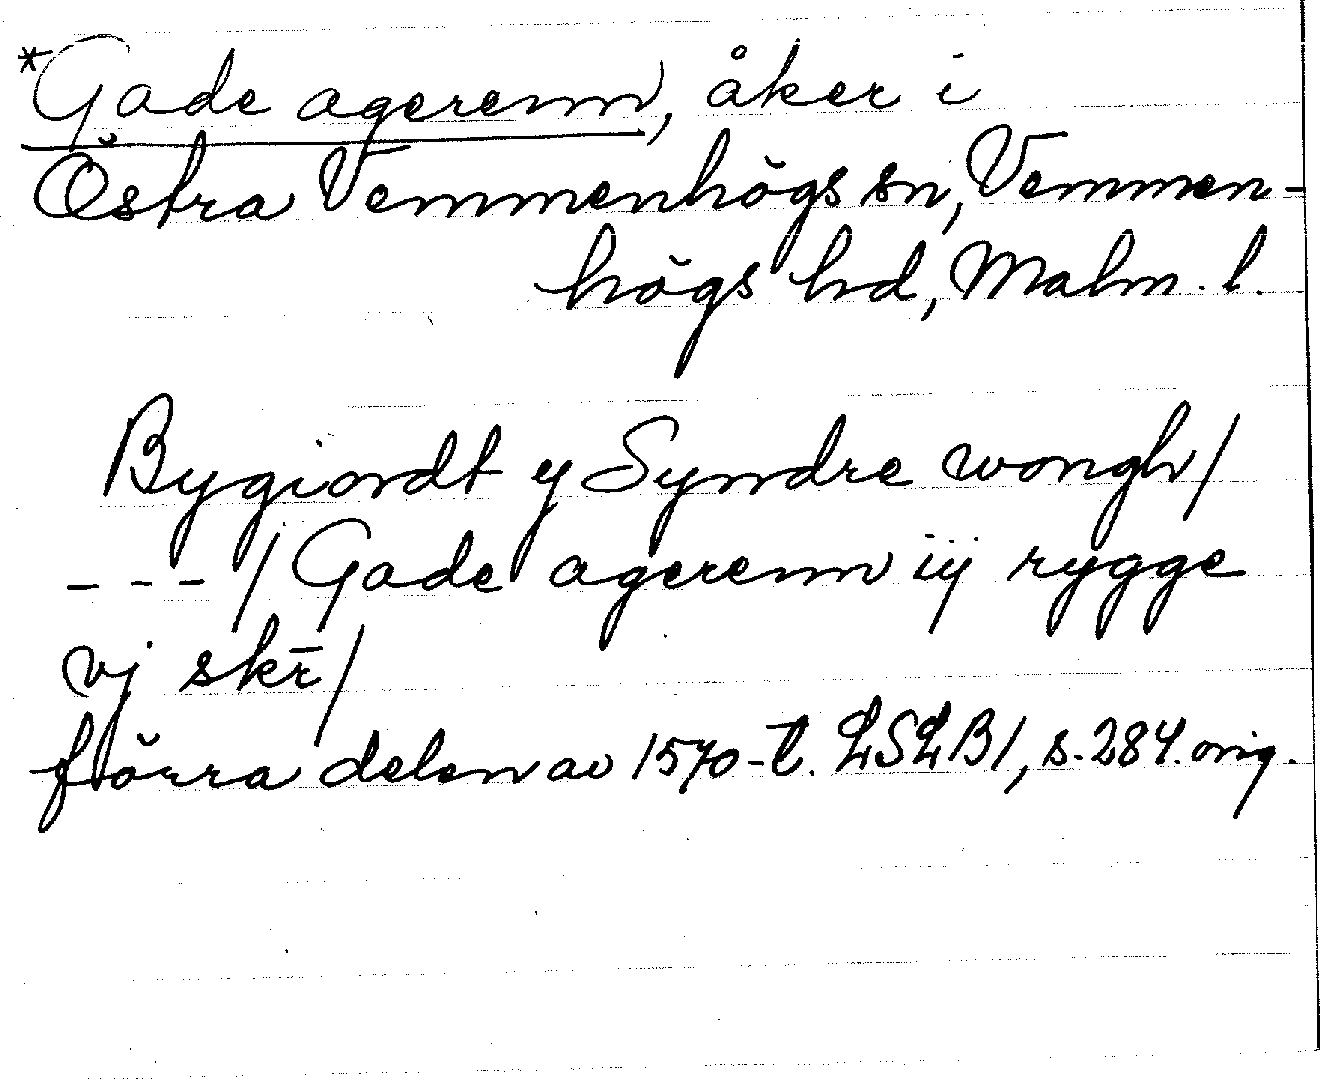 *Gade agerenn, åker i
Östra Vemmenhögs sn, Vemmen-
högs hd, Malm. l.
Bygiordt y Syndre wongh/
--- / Gade agerenn iij rygge
vj skr̄/
förra delen av 1570-t. LSLB1, s. 284. orig.